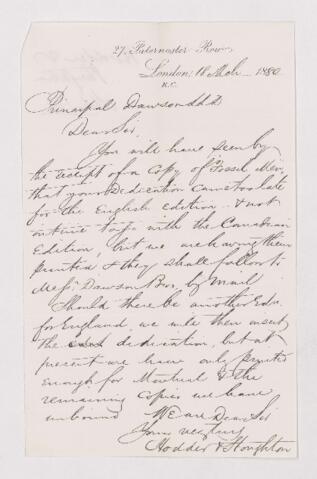 27, Paternoster Row,
London, 18 Mch 1880
E.C.
Principal Dawson LLD
Dear Sir
You will have seen by
the receipt of a Copy of "Fossil Men"
that your Dedication came too late
for the English edition & not
in time with the Canadian
Edition, but we are having them
printed & they shall follow to
Messrs Dawson Bros. by Mail
Should there be another Edn
for England, we will then insert
the dedication, but at
present we have only printed
enough for Montreal & the
remaining Copies we have
unbound We are Dear Sir
Yours very truly
Hodder & Stoughton